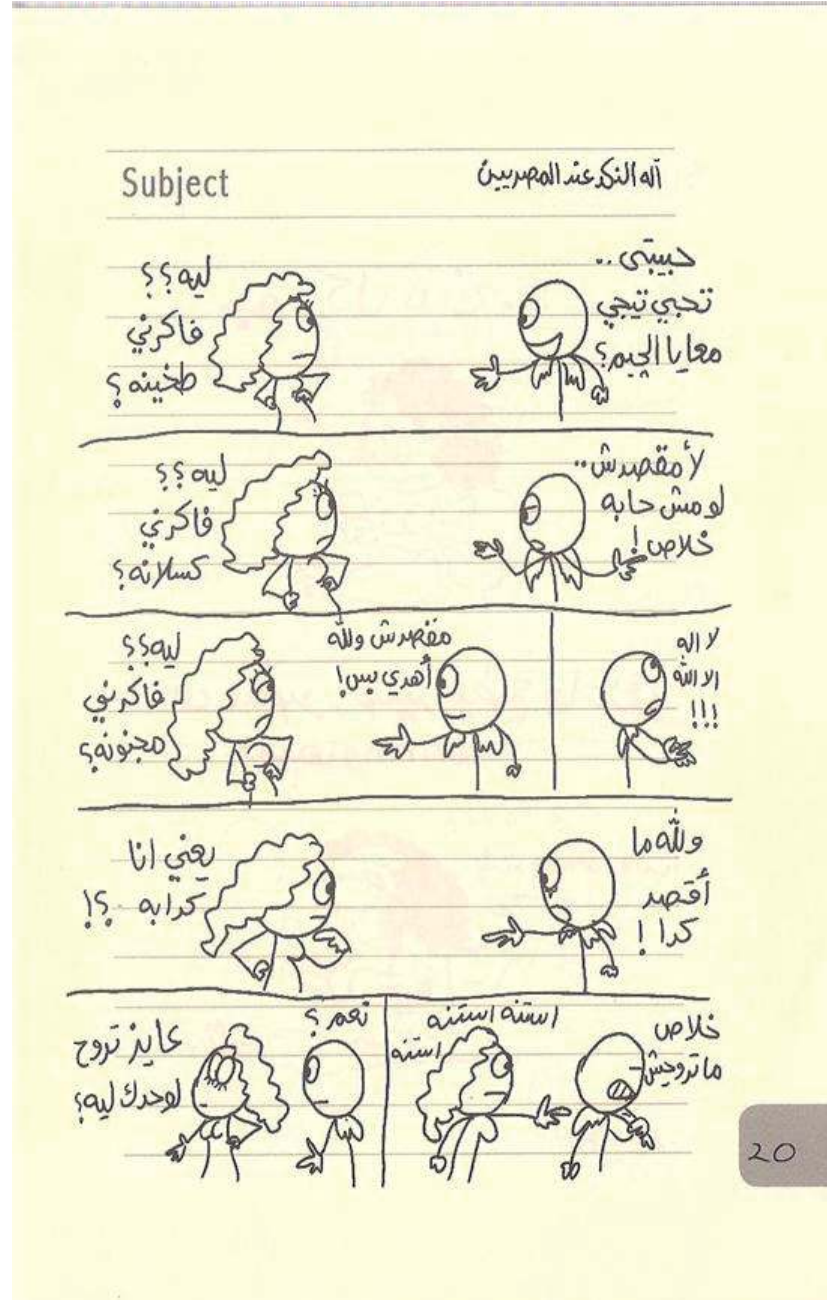 Subject
آله النكد عند المصريين
حبيبتي ..
تحبي تيجي
معايا الچيم؟
ليه؟؟
فاكرني
طخينه؟
لأ مقصدش ..
لو مش حابه
خلاص!
ليه؟؟
فاكرني
كسلانه؟
لا اله
الا الله
!!!
مقصدش ولله
أهدي بس!
ليه؟؟
فاكرني
مجنونه؟
ولله ما
أقصد
كدا!
يعني انا
كدابه ؟!
خلاص
ماتروحيش
استنه استنه
استنه
نعم؟
عايز تروح
لوحدك ليه؟
20